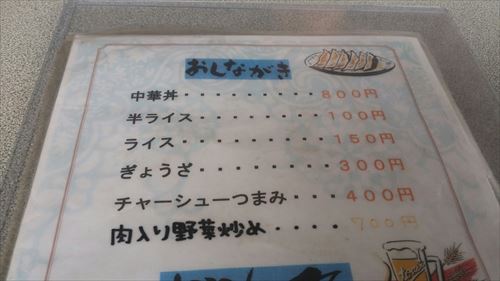 おしながき
中華丼・・・・・・・・・800円
半ライス・・・・・・・・100円
ライス・・・・・・・・・150円
ぎょうざ・・・・・・・・300円
チャーシューつまみ・・・400円
肉入り野菜炒め・・・・700円